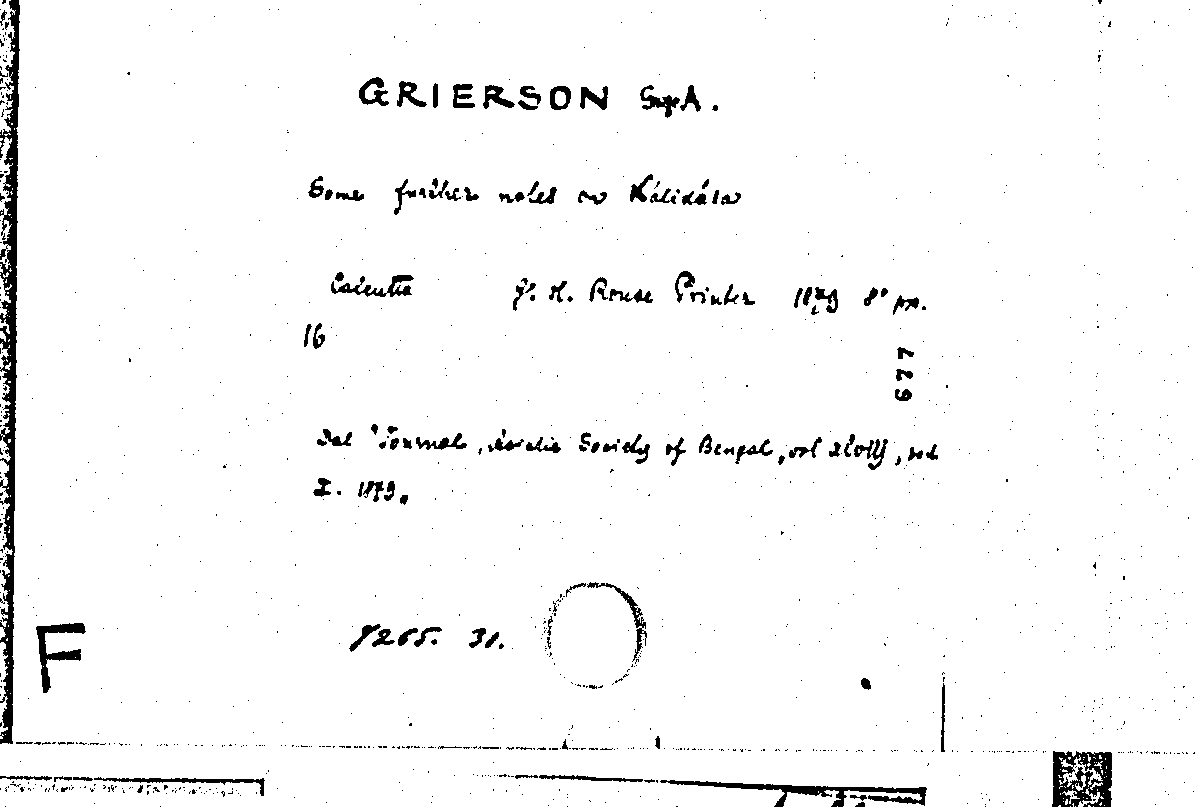 GRIERSON A.
Some further notes on Kálidása
Calcutta J. H. Rouse Printer 1879 8° pp.
16
677
Dal "Journal, Asiatic Society of Bengal, vol XLVIII, part
I. 1879.
F
7265. 31.